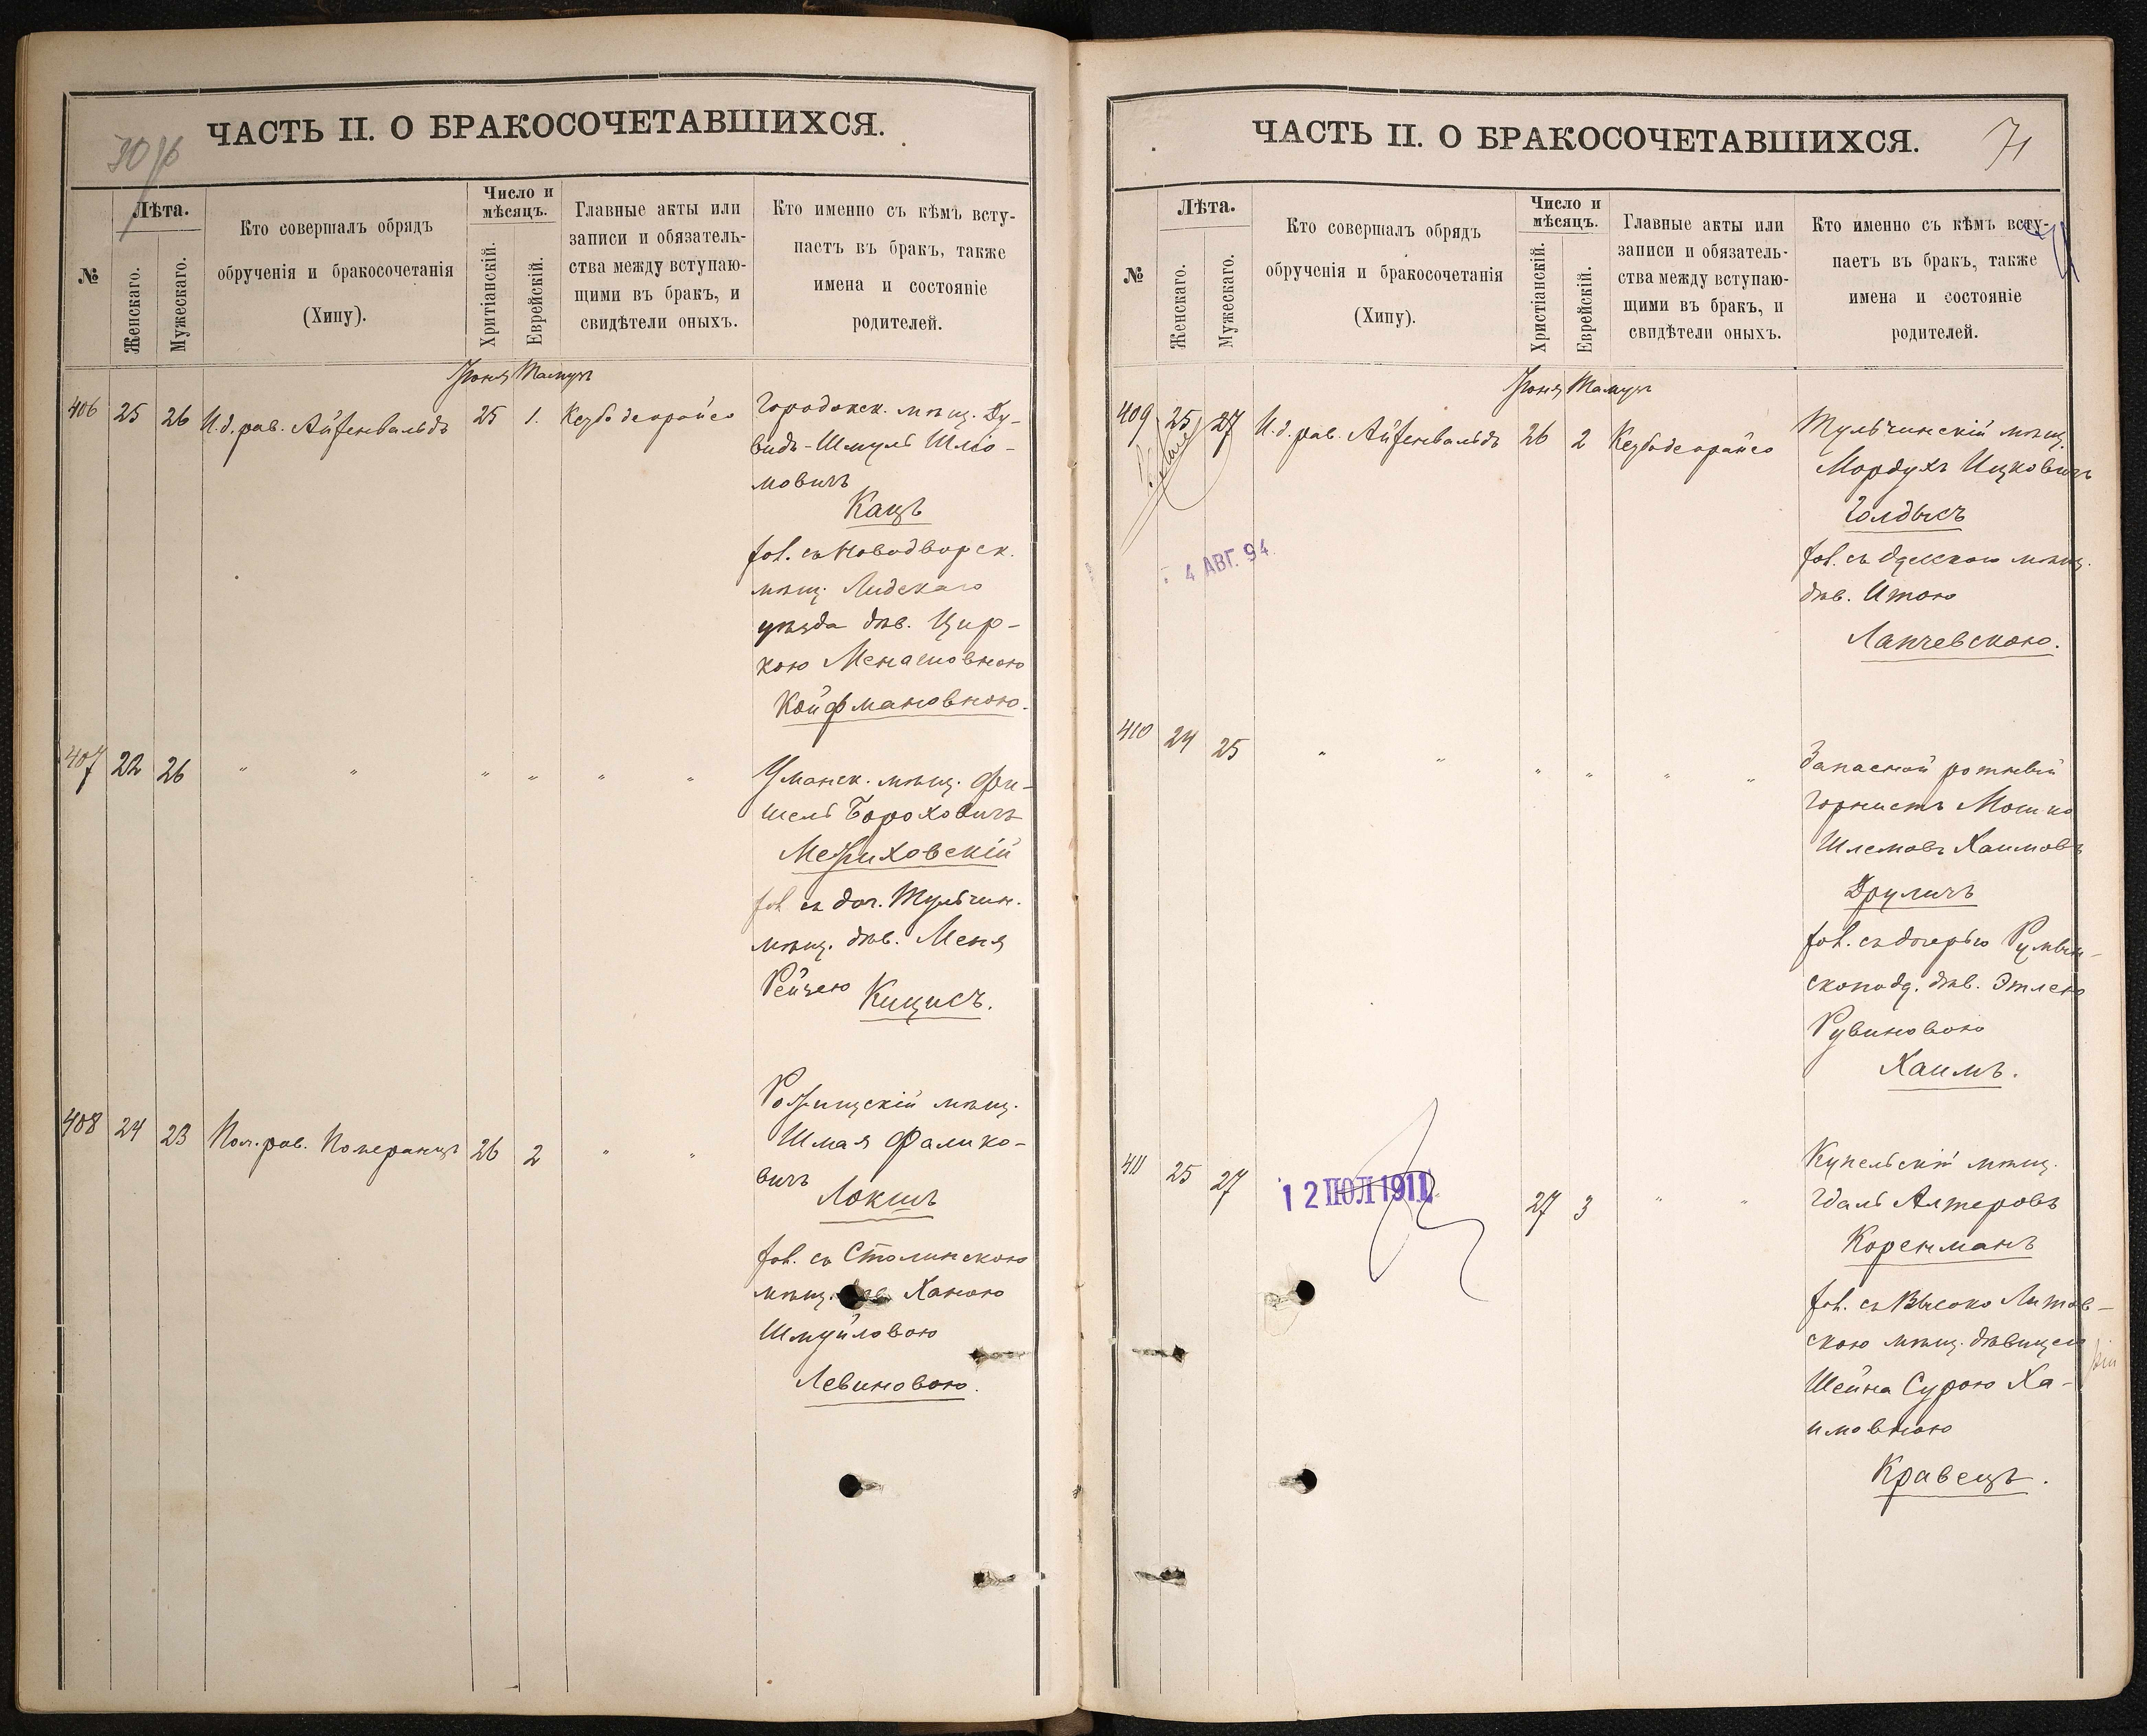 ЧАСТЬ II. О БРАКОСОЧЕТАВШИХСЯ.
№
Лѣта.
Женскаго.
Мужескаго.
Кто совершалъ обрядъ
обрученія и бракосочетанія
(Хипу).
Число и
мѣсяцъ.
Хритіанскій.
Еврейскій.
Главные акты или
записи и обязатель-
ства между вступаю-
щими въ бракъ, и
свидѣтели оныхъ.
Кто именно съ кѣмъ всту-
паетъ въ бракъ, также
имена и состояніе
родителей.
Іюня Тамузъ
406 25 26 И.д. рав. Айзенвальдъ 25 1. Кезубъ деорайсо
Городокск. мѣщ. Ду-
видъ-Шмуль Шліо-
мовичъ
Кацъ
съ Новодворск.
мѣщ. Лидскаго
уѣзда дѣв. Цир-
кою Менасовною
Койфмановною.
407 22 26 " " " " " "
Уманск. мѣщ. Фи-
шель Бороховичъ
Межиховскій
съ доч. Тульчин.
мѣщ. дѣв. Меня
Рейзею Кицисъ.
408 24 23 Поч. рав. Померанцъ 26 2 " "
Рожищскій мѣщ.
Шмая Фалико-
вичъ
Локшъ
съ Столинскою
мѣщ. Ханою
Шмуйловою
Левиновою.
ЧАСТЬ II. О БРАКОСОЧЕТАВШИХСЯ.
71
№
Лѣта.
Женскаго.
Мужескаго.
Кто совершалъ обрядъ
обрученія и бракосочетанія
(Хипу).
Число и
мѣсяцъ.
Христіанскій.
Еврейскій.
Главные акты или
записи и обязатель-
ства между вступаю-
щими въ бракъ, и
свидѣтели оныхъ.
Кто именно съ кѣмъ всту-
паетъ въ бракъ, также
имена и состояніе
родителей.
Іюня Тамузъ
409 25 27 И.д. рав. Айзенвальдъ 26 2 Кезубъ деорайсо
Тульчинскій мѣщ.
Мордухъ Ицковичъ
Голдысъ
съ Одесскою мѣщ.
дѣв. Итою
Лапчевскою.
4 АВГ. 94
410 24 25 " " " " " "
Запасной ротный
горнистъ Мошко
Шлемовъ Хаимовъ
Друличъ
съ дочерью Румын-
скопод. дѣв. Этлею
Рувиновою
Хаимъ.
411 25 27 27 3 " "
12 ІЮЛ 1911
Купельскій мѣщ.
Гдаль Алтеровъ
Коренманъ
съ Высоко Литов-
скою мѣщ. дѣвицею
Шейна Сурою Ха-
имовною
Кравецъ.